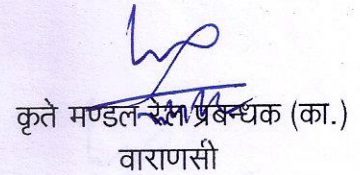 कृते मण्डल रेल प्रबन्धक (का.)
वाराणसी